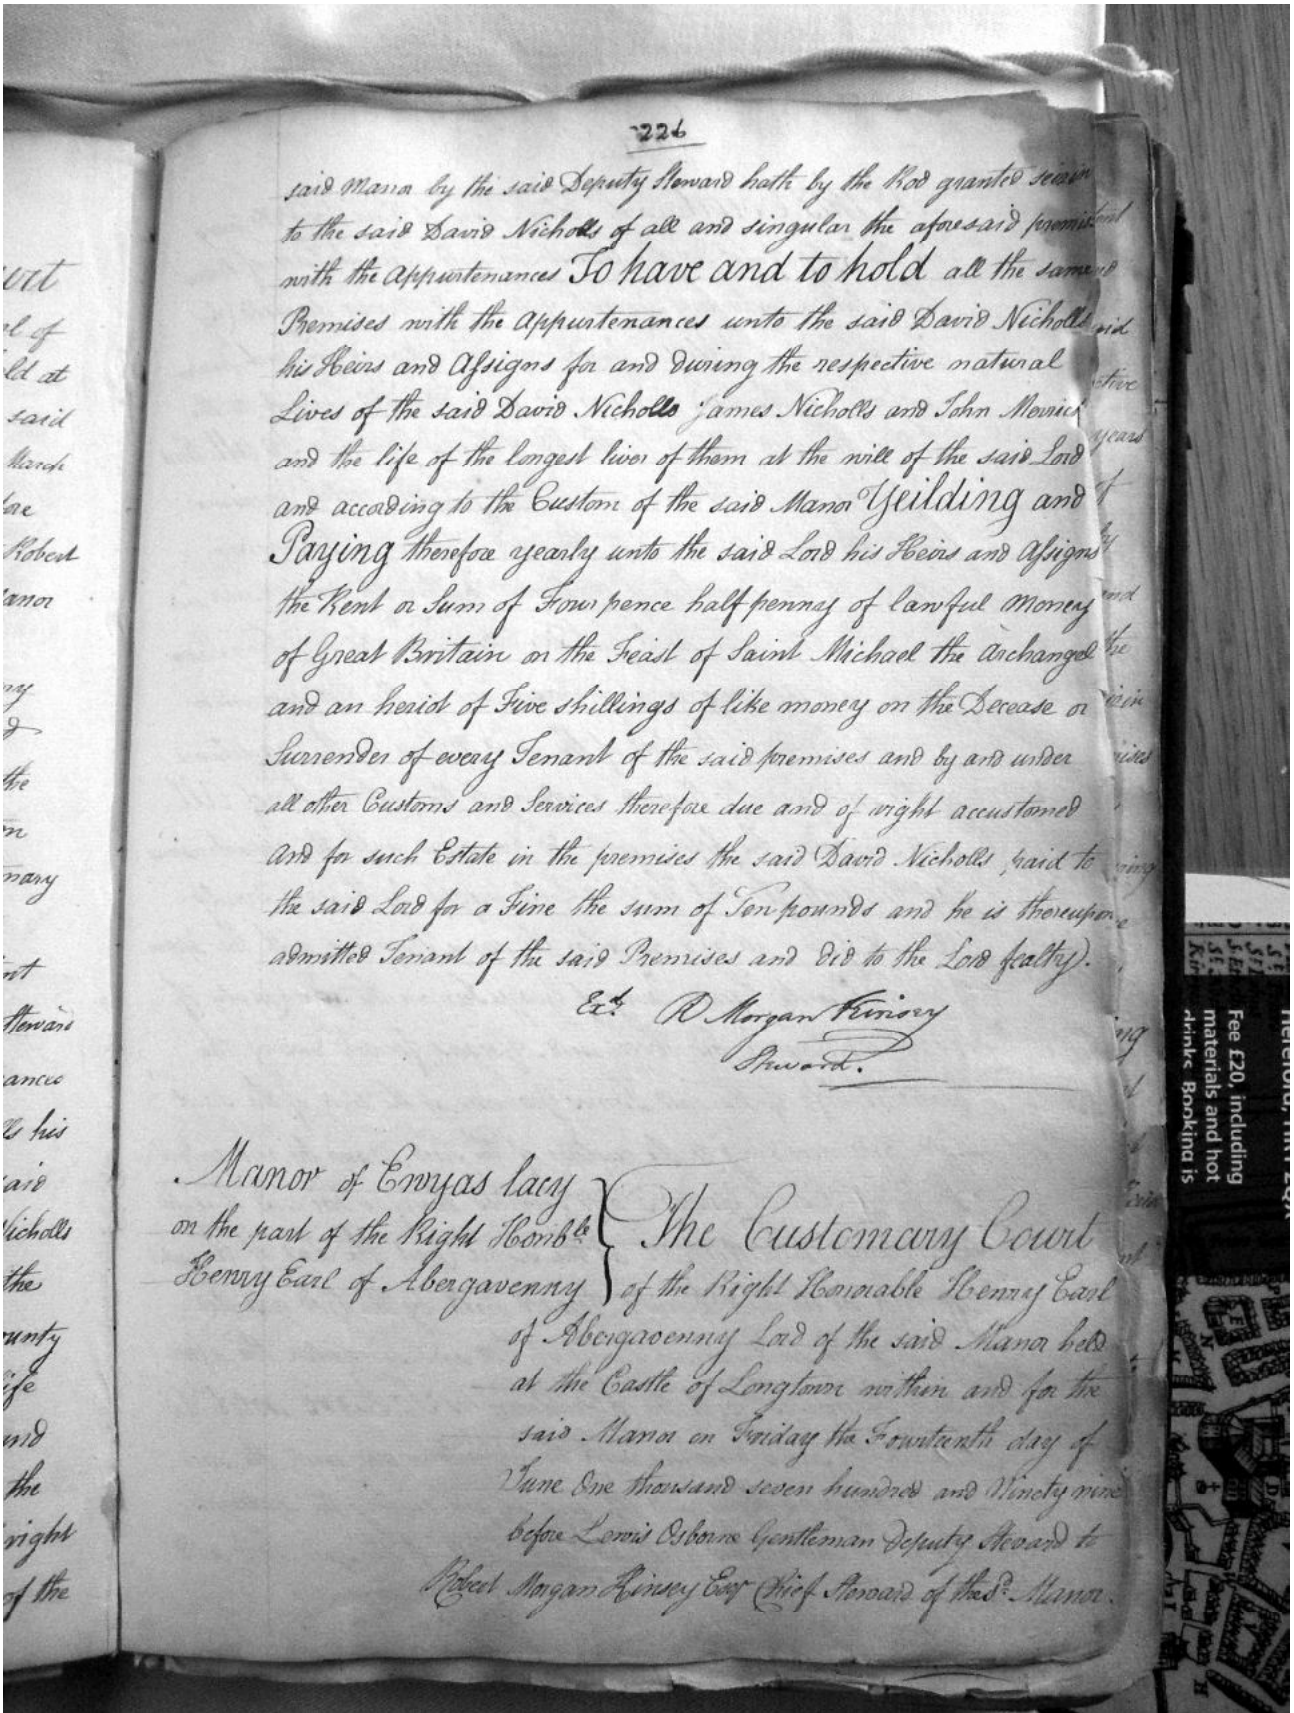 226
said Manor by the said Deputy Steward hath by the Rod granted seizin
to the said David Nicholls of all and singular the aforesaid premis
with the Appurtenances To have and to hold all the same
Premises with the Appurtenances unto the said David Nicholls
his Heirs and Assigns for and during the respective natural
Lives of the said David Nicholls James Nicholls and John Merrick
and the life of the longest liver of them at the will of the said Lord
and according to the Custom of the said Manor Yeilding and
Paying therefore yearly unto the said Lord his Heirs and Assigns
the Rent or Sum of Four pence half penny of lawful Money
of Great Britain on the Feast of Saint Michael the Archangel
and an heriot of Five shillings of like money on the Decease or
Surrender of every Tenant of the said premises and by and under
all other Customs and Services therefore due and of right accustomed
And for such Estate in the premises the said David Nicholls paid to
the said Lord for a Fine the sum of Ten pounds and he is thereupon
admitted Tenant of the said Premises and did to the Lord fealty.
Exd. R Morgan Kinsey
Steward.
Manor of Ewyas lacy
on the part of the Right Honble
Henry Earl of Abergavenny
The Customary Court
of the Right Honorable Henry Earl
of Abergavenny Lord of the said Manor held
at the Castle of Longtown within and for the
said Manor on Friday the Fourteenth day of
June One thousand seven hundred and Ninety nine
before Lewis Osborne Gentleman Deputy Steward to
Robert Morgan Kinsey Esqr Chief Steward of the sd. Manor.
ld at
said
March
Robert
the
Steward
ances
lls his
said
Nicholls
the
ounty
life
and
the
right
of the
years
Fee £20, including
materials and hot
drinks Booking is